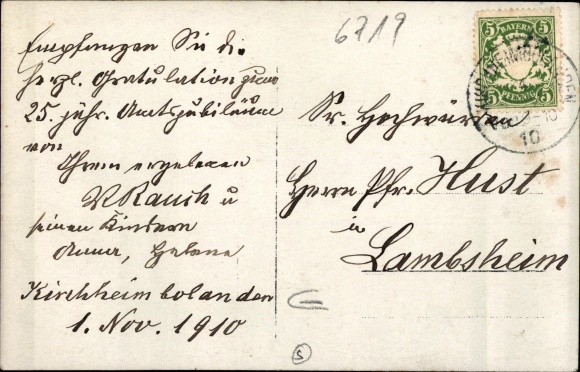 6719
Empfangen Sie die
herzl. Gratulation zum
25. jähr. Amtsjubiläum
von
Ihrem ergebenen
V. Rauch u
seinen Kindern
Anna, Helene
Kirchheimbolanden
1. Nov. 1910
BAYERN
5 5
5 5
PFENNIG
10
Sr. Hochwürden
Herrn Pfr. Hust
in
Lambsheim
S